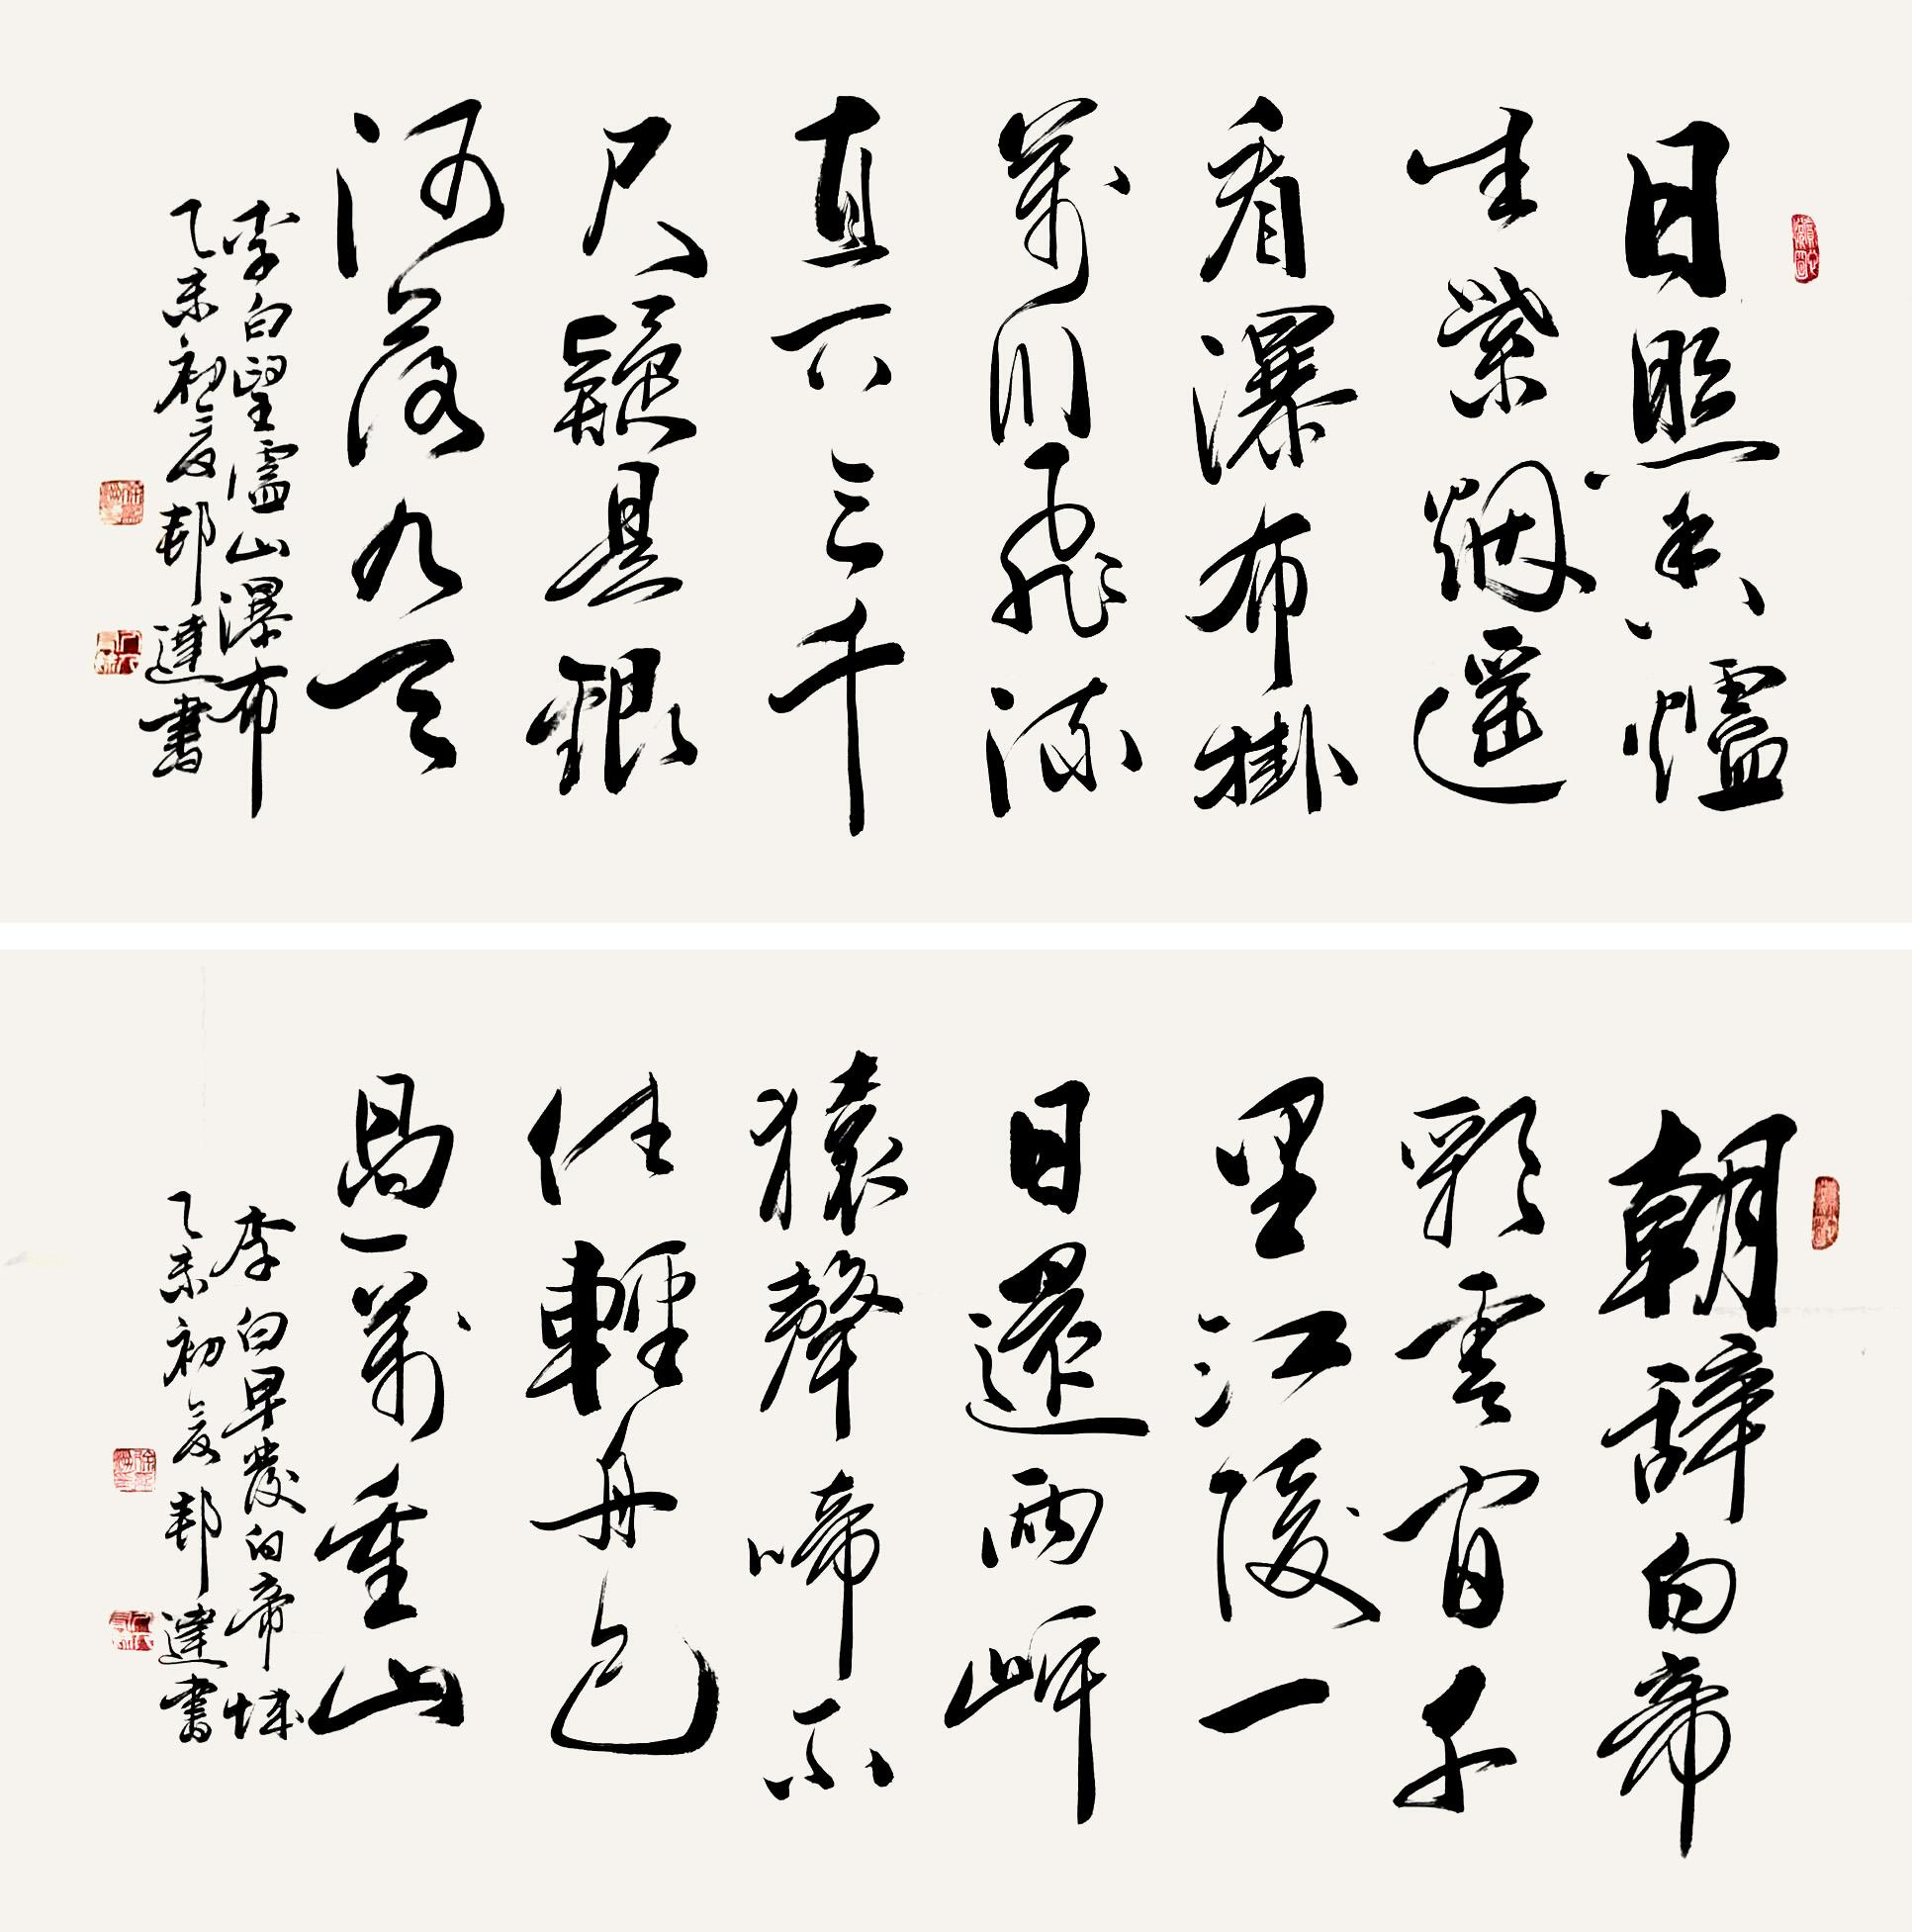 日照香爐
生紫烟遥
看瀑布掛
前川飛流
直下三千
尺疑是銀
河落九天
李白望廬山瀑布
乙未初夏邦達書
朝辭白帝
彩雲間千
里江陵一
日還兩岸
猿聲啼不
住輕舟已
過萬重山
李白早發白帝城
乙未初夏邦達書